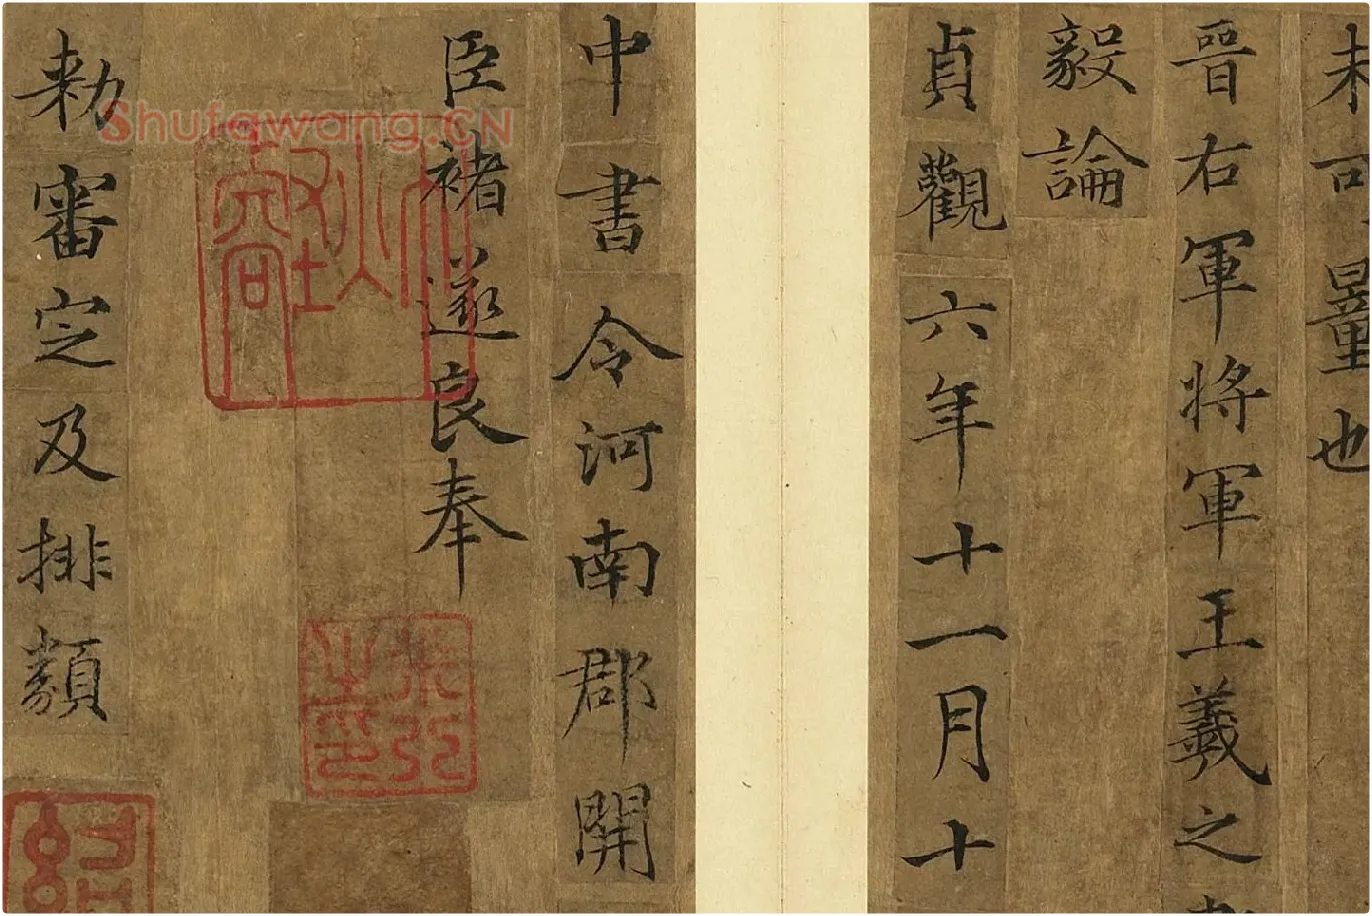 未可量也
晉右軍將軍王羲之
毅論
貞觀六年十一月十
中書令河南郡開
臣褚遂良奉
敕審定及排類
Shufawang.CN